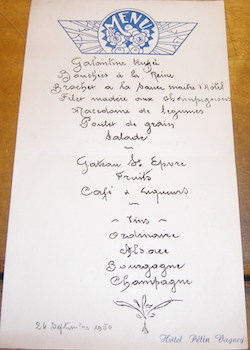 MENU
Galantine truffé
Bouchées à la Reine
Brochet a la sauce maitre d'hôtel
Filet madère aux champignons
Macédoine de légumes
Poulet de grain
Salade
Gateau St Epvre
Fruits
Café & Liqueurs
Vins
Ordinaire
Alsace
Bourgogne
Champagne
26 Septembre 1950
Hôtel Pétin Vagney